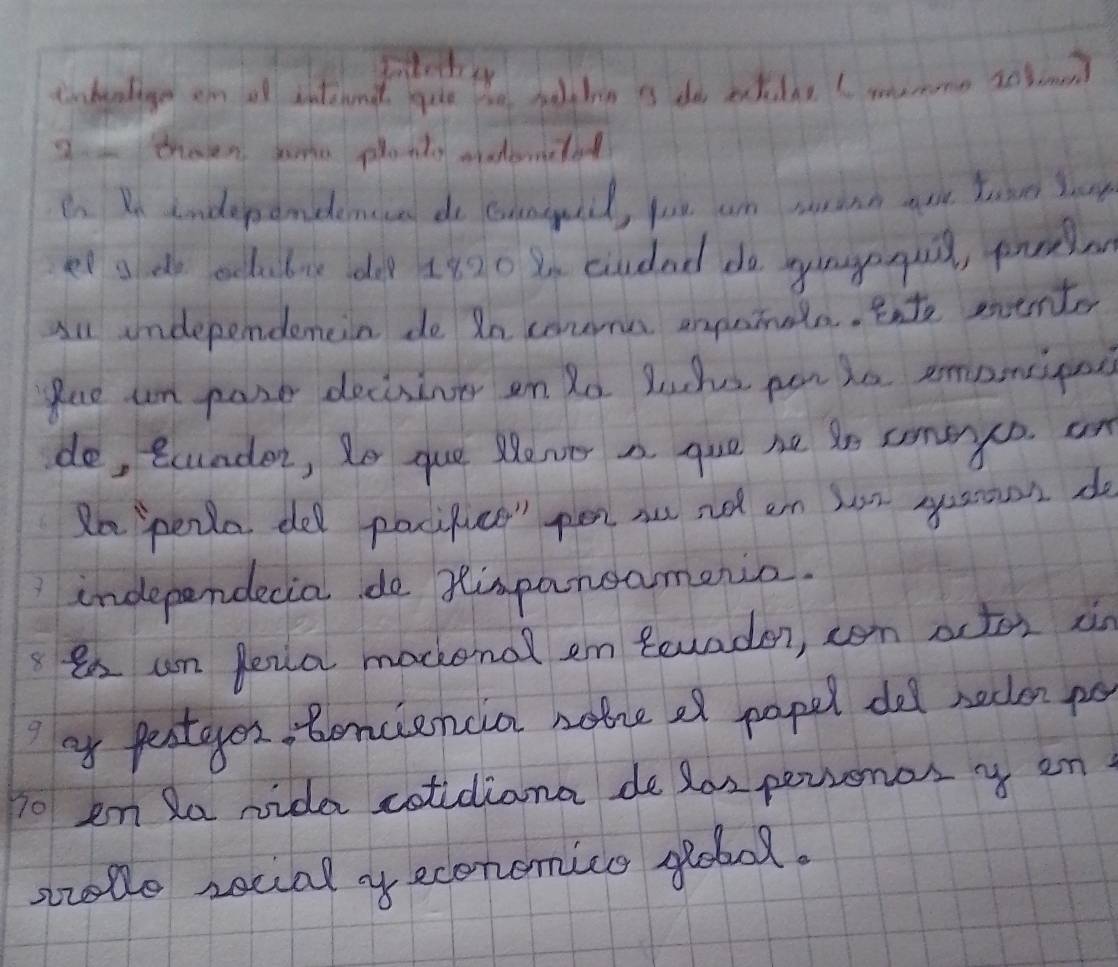 en el internet que se celebra 9 de octubre (
2 - traer una planta
Es la independencia de Guayaquil, fue un suceso que tuvo
el 9 de octubre del 1820 la ciudad de guayaquil,
su independencia de la corona española. Este evento
fue un paso decisivo en la lucha por la emancipaci
de, Ecuador, lo que llevo a que se lo conozca
la "perla del pacifico" por su rol en las guerras de
7 independecia de Hispanoameria.
8 Es un feria nacional en Ecuador, con actos
9 y festejos. Conciencia sobre el papel del sector po
10 en la vida cotidiana de las personas y en
rrollo social y economico global.